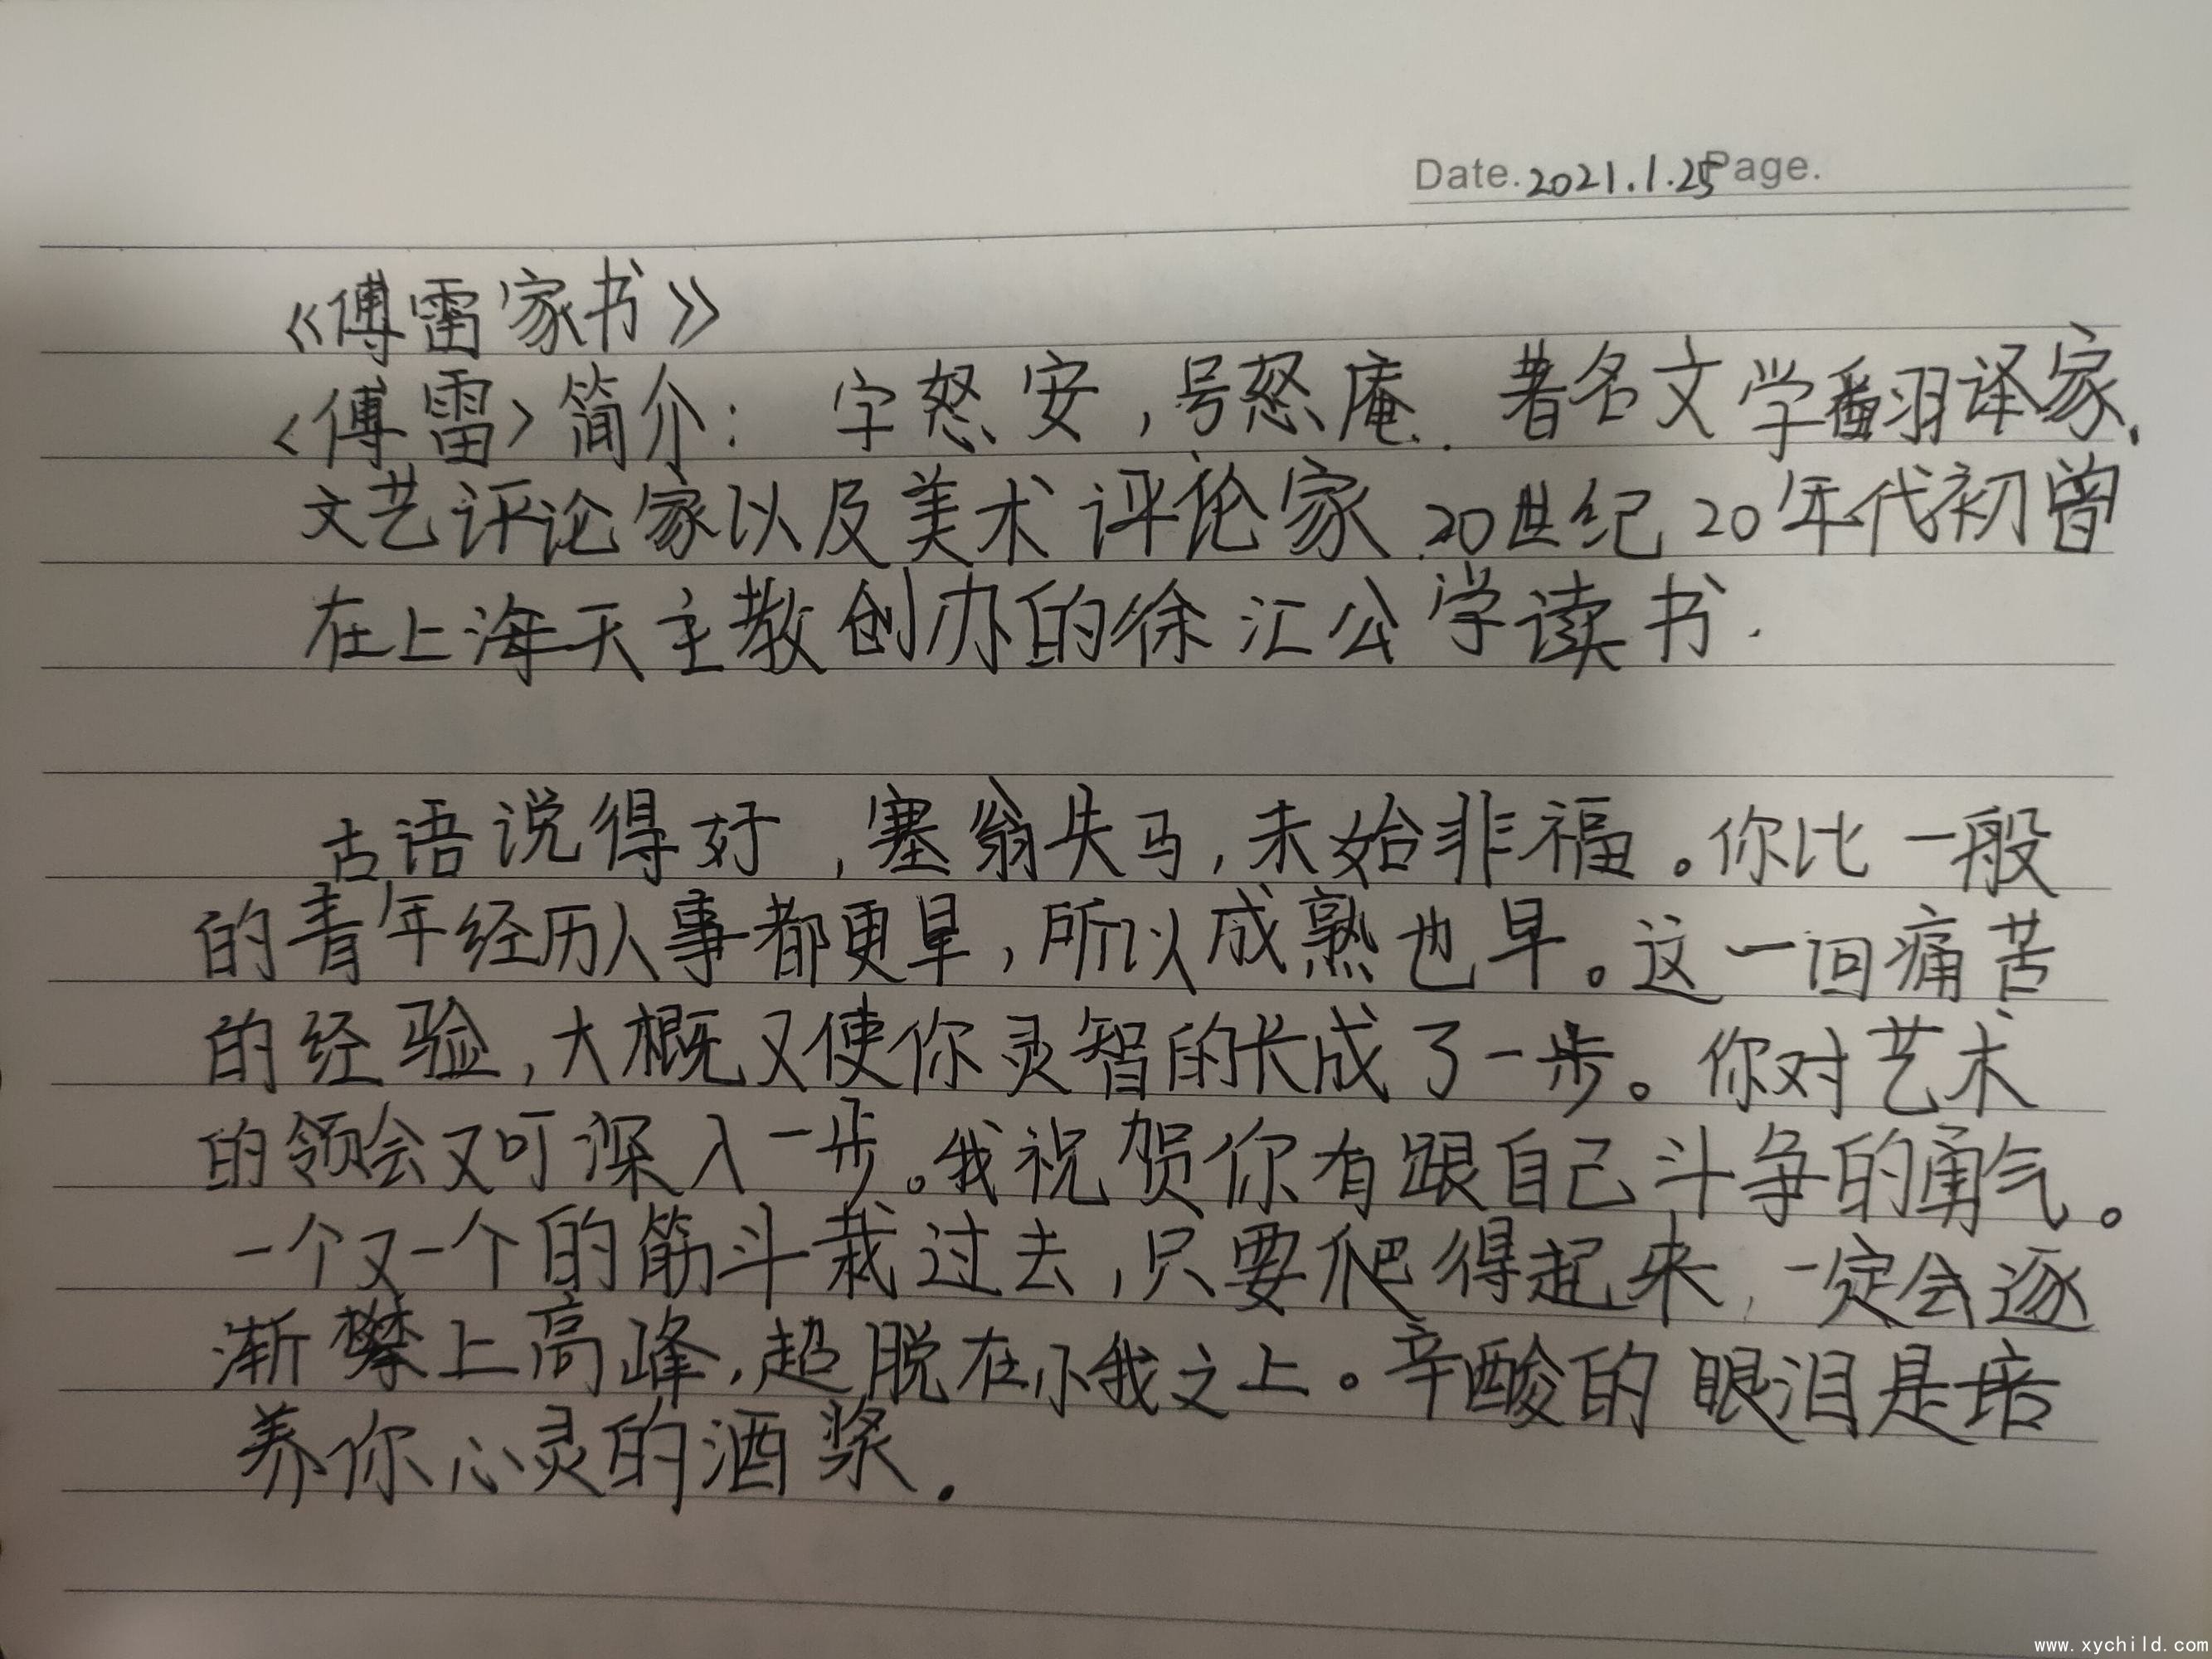 Date.2021.1.25 Page.
《傅雷家书》
<傅雷>简介： 字怒安，号怒庵. 著名文学翻译家、
文艺评论家以及美术评论家.20世纪20年代初曾
在上海天主教创办的徐汇公学读书.
古语说得好，塞翁失马，未始非福。你比一般
的青年经历人事都更早，所以成熟也早。这一回痛苦
的经验，大概又使你灵智的长成了一步。你对艺术
的领会又可深入一步。我祝贺你有跟自己斗争的勇气。
一个又一个的筋斗栽过去，只要爬得起来，一定会逐
渐攀上高峰，超脱在小我之上。辛酸的眼泪是培
养你心灵的酒浆.
www.xychild.com